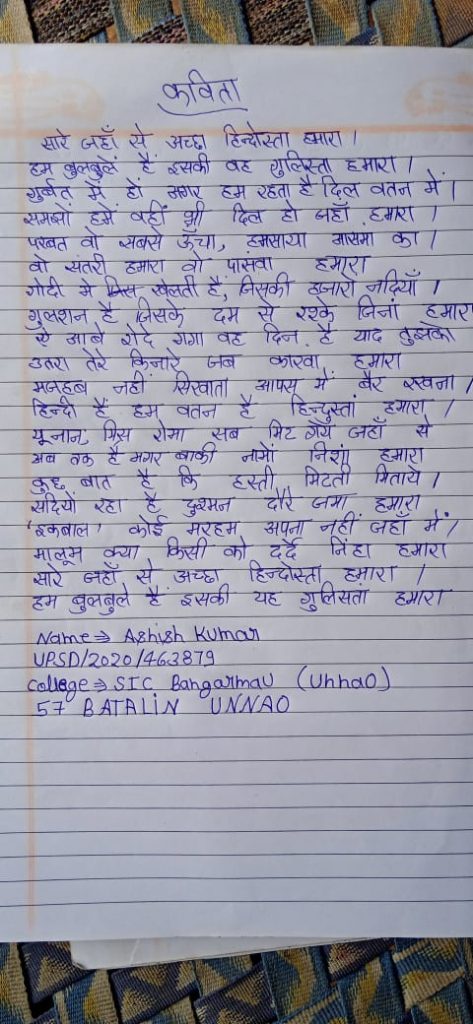 कविता
सारे जहाँ से अच्छा हिन्दोस्ता हमारा।
हम बुलबुलें हैं इसकी वह गुलिस्ता हमारा।
गुर्बत में हों अगर हम रहता है दिल वतन में।
समझो हमें वहीं भी दिल हो जहाँ हमारा।
परबत वो सबसे ऊँचा, हमसाया आसमा का।
वो संतरी हमारा वो पासंवा हमारा
गोदी मे खेलती है, जिसकी हजारो नदियाँ।
गुलशन है जिसके दम से रश्के जिनां हमारा
ऐ आबे रोदे गंगा वह दिन है याद तुझको
उतरा तेरे किनारे जब कारवा हमारा
मजहब नहीं सिखाता आपस में बैर रखना।
हिन्दी है हम वतन है हिन्दुस्तां हमारा।
यूनान मिस रोमा सब मिट गये जहाँ से
अब तक है मगर बाकी नामों निशां हमारा
कुछ बात है कि हस्ती मिटती मिताये।
सदियों रहा है दुश्मन दौरे जमा हमारा
'इकबाल' कोई मरहम अपना नहीं जहाँ में।
मालूम क्या किसी को दर्दे निंहा हमारा
सारे जहाँ से अच्छा हिन्दोस्ता हमारा।
हम बुलबुले हैं इसकी यह गुलिसता हमारा
Name⇒ Ashish Kumar
UPSD/2020/463879
College⇒ SIC Bangarmau (Unnao)
57 BATALIN UNNAO